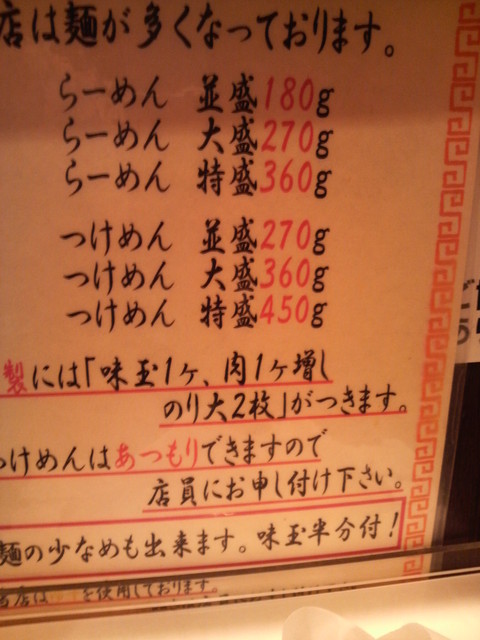 店は麺が多くなっております。
らーめん 並盛180g
らーめん 大盛270g
らーめん 特盛360g
つけめん 並盛270g
つけめん 大盛360g
つけめん 特盛450g
製には「味玉1ヶ、肉1ヶ増し
のり大2枚」がつきます。
つけめんはあつもりできますので
店員にお申し付け下さい。
麺の少なめも出来ます。味玉半分付!
当店はゆずを使用しております。